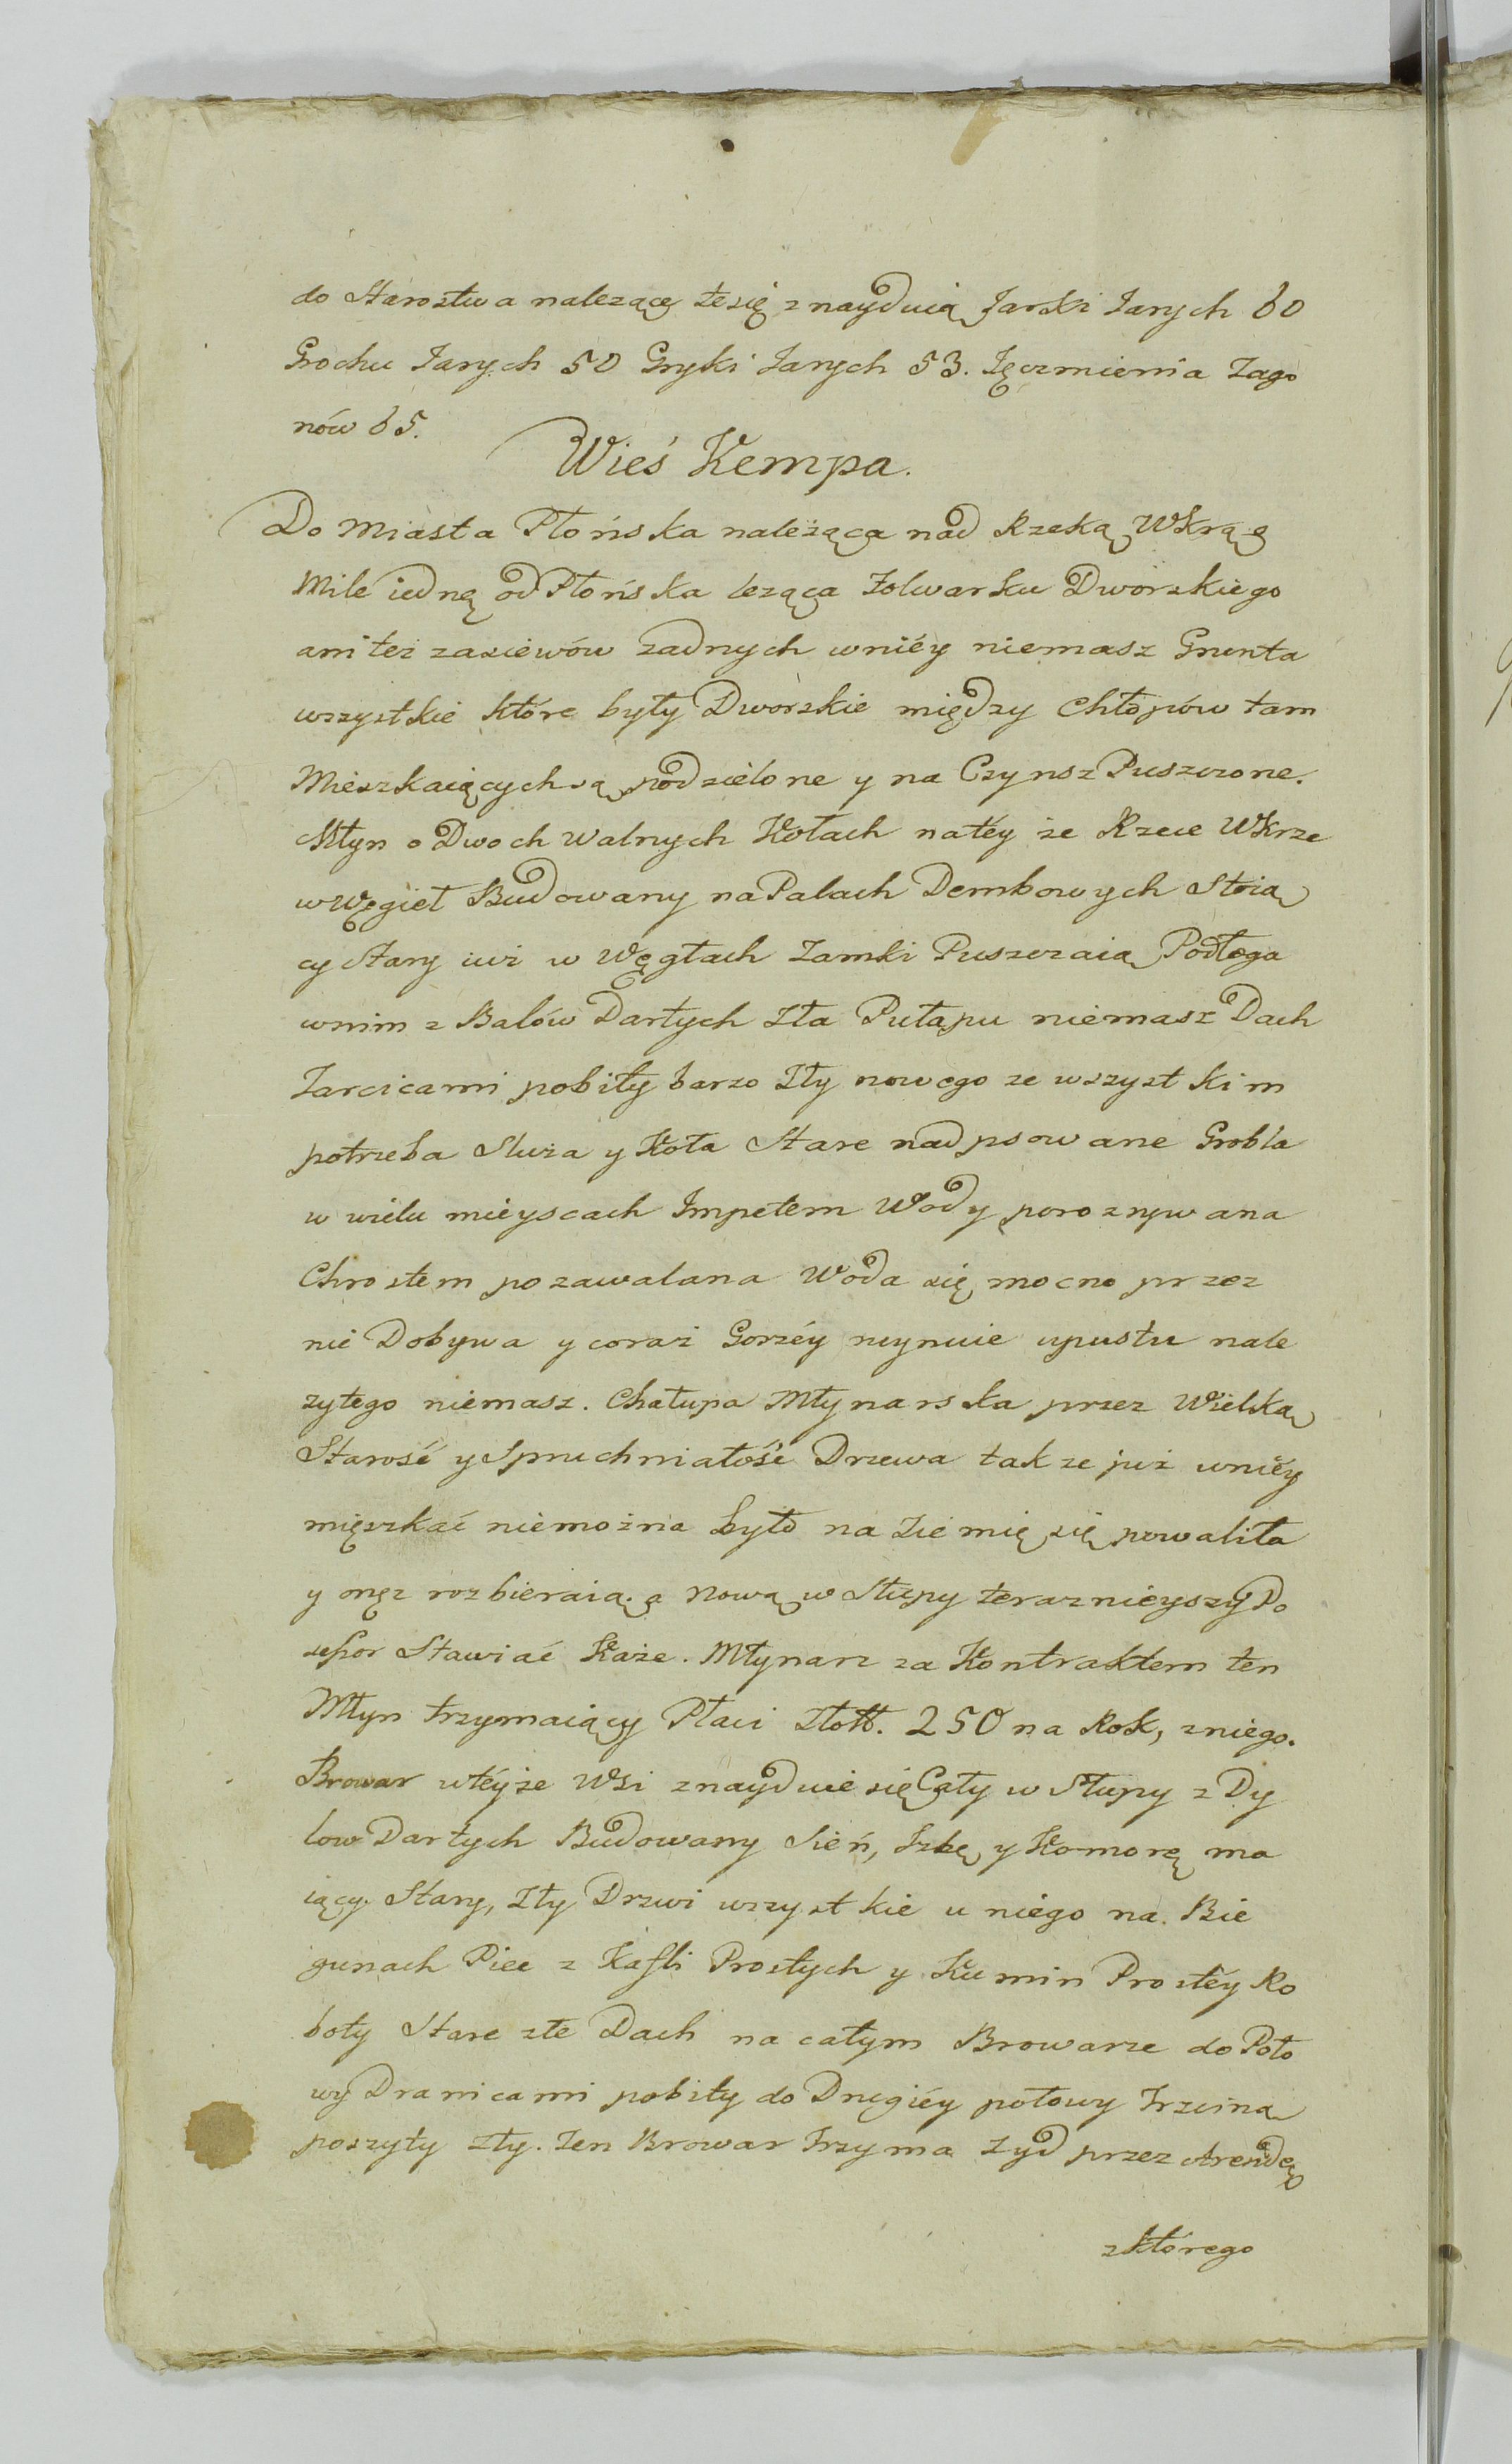 do Starostwa nalezące te się znayduią Jarki Jarych 60
Grochu Jarych 50 Gryki Jarych 53. Jęczmienia Zago
nów 65.
Wieś Kempa.
Do Miasta Płońska należąca nad Rzeką Wkrą o
Mile iedną od Płońska leząca Folwarku Dworskiego
ani też zasiewów zadnych wniéy niemasz Grunta
wszystkie które były Dworskie między Chłopów tam
Mieszkaiących są podzielone y na Czynsz Puszczone.
Młyn o Dwoch Walnych Kołach natéy że Rzece Wkrze
w Węgieł Budowany na Palach Dembowych Stoią
cy Stary iuż w Węgłach Zamki Puszczaią Podłoga
wnim z Balów Dartych Zła Pułapu niemasz Dach
Tarcicami pobity barzo Zły nowego ze wszystkim
potrzeba Sluza y Koła Stare nadpsowane Grobla
w wielu mieyscach Impetem Wody porozrywana
Chrostem pozawalana Woda się mocno przez
nie Dobywa y coraz Gorzéy ruynuie upustu nale
zytego niemasz. Chałupa Młynarska przez Wielką
Starość y Spruchniałość Drzewa tak ze już wniéy
mięszkać niemożna było na Ziemię się powaliła
y onęz rozbieraią. a Nową w Słupy teraznieyszy Po
sessor Stawiać Każe. Młynarz za Kontraktem ten
Młyn trzymaiący Płaci Złott. 250 na Rok, z niego.
Browar wtéyże Wsi znayduie się Cały w Słupy z Dy
low Dartych Budowany Sień, Izbę y Komorę ma
iący Stary, Zły Drzwi wszystkie u niego na Bie
gunach Piec z Kafli Prostych y Kumin Prostéy Ro
boty Stare złe Dach na całym Browarze do Poło
wy Dranicami pobity do Drugiéy połowy Trzciną
poszyty zły. Ten Browar Trzyma Zyd przez Arendę
z którego